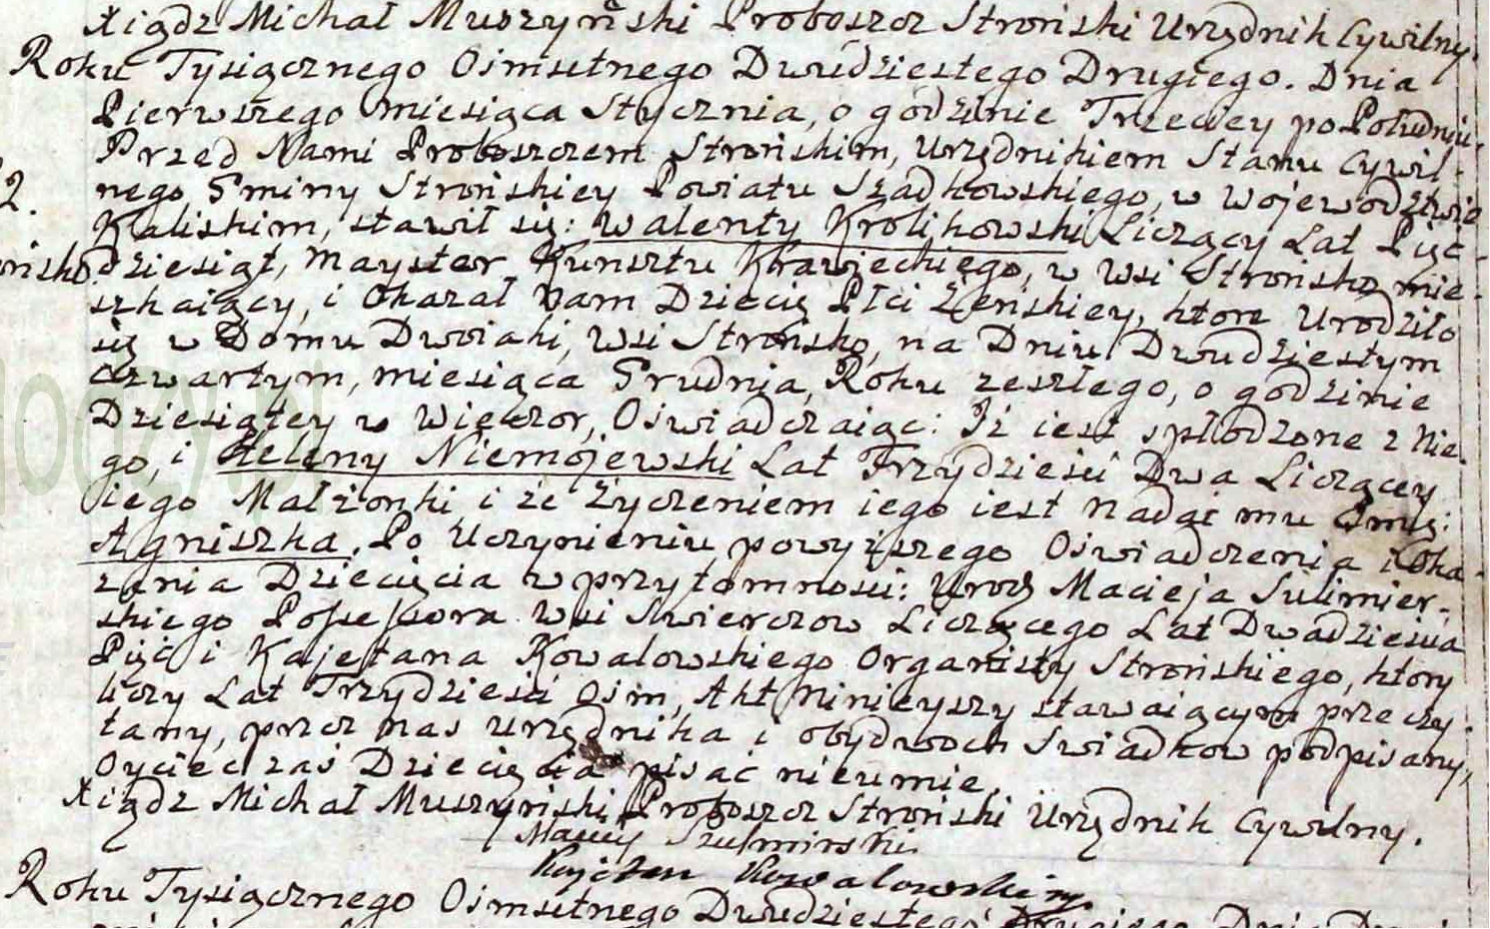 Xiądz Michał Muszyński Proboszcz Stroński Urzędnik Cywilny.
Roku Tysiącznego Osmsetnego Dwudziestego Drugiego. Dnia
Pierwszego miesiąca Stycznia, o godzinie Trzeciey po Południu.
Przed Nami Proboszczem Strońskim, Urzędnikiem Stanu Cywil-
2.
nego Gminy Strońskiey Powiatu Szadkowskiego, w Wojewodztwie
Kaliskim, stawił się: Walenty Krolikowski Liczący Lat Pięć-
dziesiąt, Mayster Kunsztu Krawieckiego, w Wsi Strońsko mie-
szkaiący, i Okazał Nam Dziecię Płci Żeńskiey, ktore Urodziło
się w Domu Dworaki, Wsi Strońsko, na Dniu Dwudziestym
czwartym, miesiąca Grudnia, Roku zeszłego, o godzinie
Dziesiątey w Wieczor, Oswiadczaiąc: Iż iest spłodzone z Nie-
go, i Heleny Niemojewski Lat Trzydzieści Dwa Liczącey
iego Małżonki i że Życzeniem iego iest nadać mu Imię:
Agniszka. Po Uczynieniu powyższego Oswiadczenia i Oka-
zania Dziecięcia w przytomności: Urodz Macieja Sulimier-
skiego Possessora Wsi Swierczow Liczącego Lat Dwadzieścia
Pięć i Kajetana Kowalowskiego Organisty Strońskiego, ktory
liczy Lat Trzydzieści Osm, Akt Ninieyszy stawaiącym przeczy-
tany, przez nas urzędnika i obydwoch Swiadkow podpisany,
Oyciec zaś Dziecięcia pisać nieumie.
Xiądz Michał Muszyński Proboszcz Stroński Urzędnik Cywilny.
Maciey Szulmirski
Kajetan Kowalowski
Roku Tysiącznego Osmsetnego Dwudziestego Drugiego Dnia